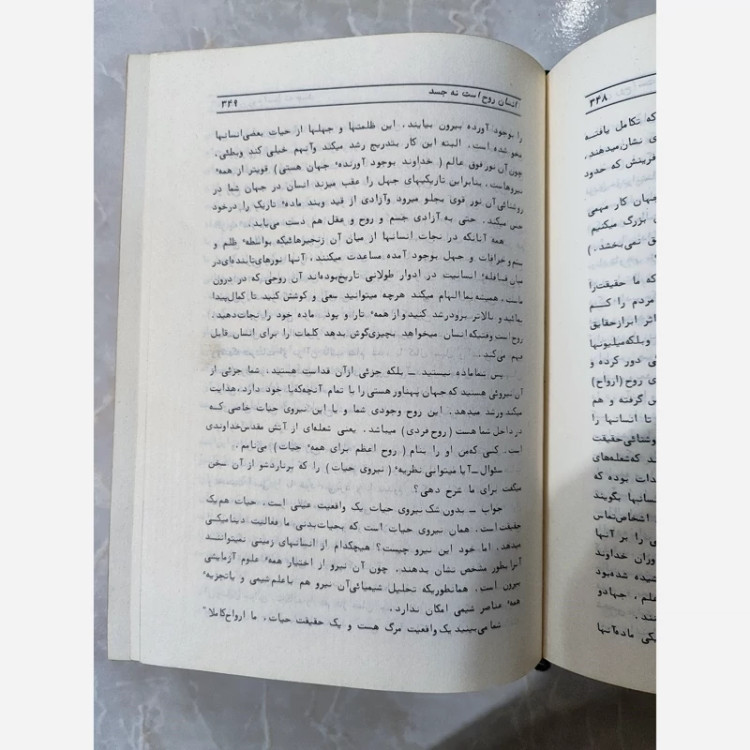 ۳۴۹ انسان روح است نه جسد
را بوجود آورده بیرون بیایند. این ظلمتها و جهلها از حیات بعضی‌انسانها
محو شده است. البته این کار بتدریج رشد میکند و آنهم خیلی کند و بطئی،
چون آن نور فوق عالم ( خداوند بوجود آورندهٔ جهان هستی ) قویتر از همهٔ
نیروهاست. بنابراین تاریکیهای جهل را عقب میزند انسان در جهان شما در
روشنائی آن نور قوی بجلو میرود و آزادی از قید وبند مادهٔ تاریک را درخود
حس میکند. حتی به آزادی جسم و روح و عقل هم دست می‌یابد.
همه آنانکه در نجات انسانها از میان آن زنجیرهائیکه بواسطهٔ ظلم و
ستم و خرافات و جهل بوجود آمده مساعدت میکنند، آنها نورهای‌تابنده‌ای‌در
میان قافلهٔ انسانیت در ادوار طولانی تاریخ‌بوده‌اند آن روحی که در درون
ماست، همیشه بما الهام میکند هرچه میتوانید سعی و کوشش کنید تا کمال‌پیدا
نمائید و بالاتر برود رشد کنید و از همهٔ تار و پود ماده خود را نجات‌دهید،
روح است وقتیکه انسان میخواهد بچیزی‌گوش بدهد کلمات را برای انسان قابل
فهم می‌کند.
پس شما ماده نیستید ــ بلکه جزئی ازآن قداست هستید، شما جزئی از
آن نیروئی هستید که جهان پهناور هستی را با تمام آنچه‌که‌با خود دارد، هدایت
میکند و رشد میدهد. این روح وجودی شما و یا این نیروی حیات خاصی که
در داخل شما هست ( روح فردی ) میباشد. یعنی شعله‌ای از آتش مقدس‌خداوندی
است. کسی که‌من او را بنام ( روح اعظم برای همهٔ حیات ) می‌نامم.
سئوال ــ آیا میتوانی نظریهٔ ( نیروی حیات ) را که برناردشو از آن سخن
میگفت برای ما شرح دهی؟
جواب ــ بدون شک نیروی حیات یک واقعیت عینی است. حیات هم‌یک
حقیقت است. همان نیروی حیات است که بحیات‌بدنی ما فعالیت دینامیکی
میدهد. اما خود این نیرو چیست؟ هیچکدام از انسانهای زمینی نمیتوانند
آنرا بطور مشخص نشان بدهند. چون آن نیرو از اختیار همهٔ علوم آزمایشی
بیرون است. همانطوریکه تحلیل شیمیائی‌آن نیرو هم باعلم‌شیمی و باتجزیهٔ
همهٔ عناصر شیمی امکان ندارد.
شما می‌بینید یک واقعیت مرگ هست و یک حقیقت حیات. ما ارواح‌کاملاً
۳۴۸
که تکامل یافته
ی نشان میدهند،
فرینش که حدود
جهان کار مهمی
بزرگ میکنیم
ق نمی‌بخشد. )
که ما حقیقت‌را
مردم را کسم
اثر ابراز حقایق
وبلکه‌میلیونها
دور کرده و
ی روح ( ارواح )
س گرفته و هم
تا انسانها را
وشنائی‌حقیقت
که‌شعله‌های
دات بوده که
سانها بگویند
اشخاص‌تماس
ی را بر آنها
وزان خداوند
شیده شده‌بود
علم، جهاد و
یکی ماده‌آنها